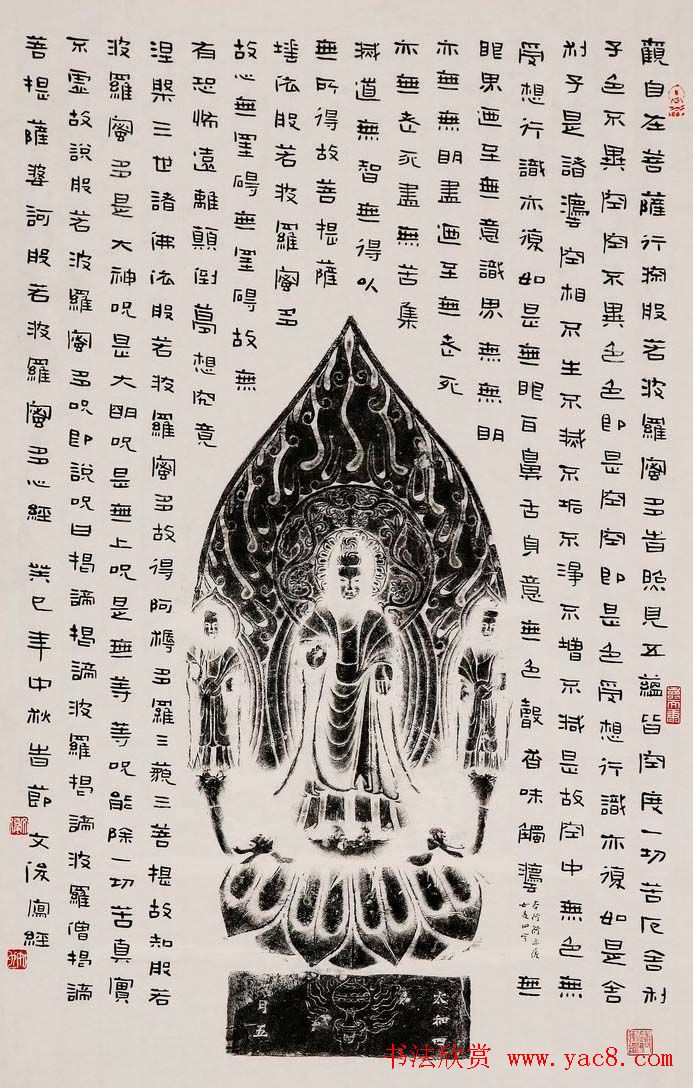 觀自在菩薩行深般若波羅蜜多旹照見五蘊皆空度一切苦厄舍利
子色不異空空不異色色即是空空即是色受想行識亦復如是舍
利子是諸灋空相不生不滅不垢不淨不增不減是故空中無色無
受想行識亦復如是無眼耳鼻舌身意無色聲香味觸灋無
眼界迺至無意識界無無明
亦無無明盡迺至無老死
亦無老死盡無苦集
滅道無智無得以
無所得故菩提薩
埵依般若波羅蜜多
故心無罣礙無罣礙故無
有恐怖遠離顛倒夢想究竟
涅槃三世諸佛依般若波羅蜜多故得阿耨多羅三藐三菩提故知般若
波羅蜜多是大神咒是大明咒是無上咒是無等等咒能除一切苦真實
不虛故說般若波羅蜜多咒即說咒曰揭諦揭諦波羅揭諦波羅僧揭諦
菩提薩婆訶般若波羅蜜多心經 癸巳年中秋旹節 文俊寫經
太和四
月五
书法欣赏 www.yac8.com